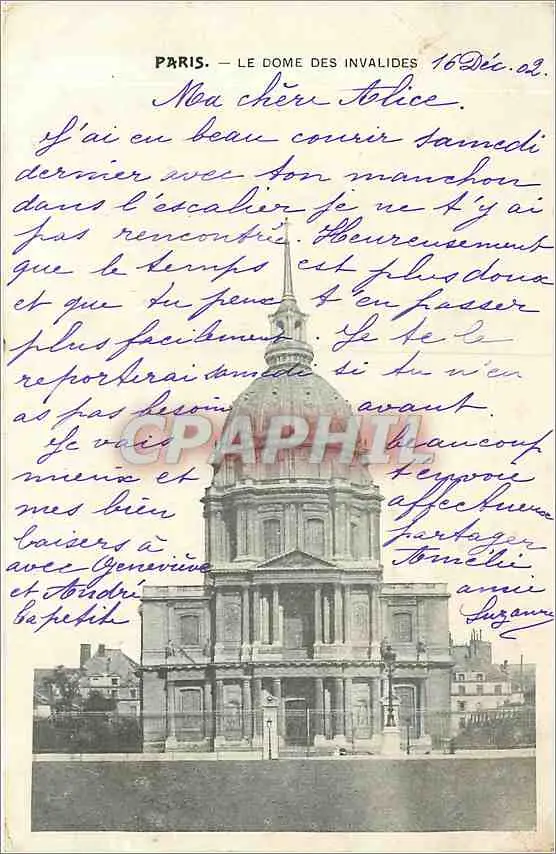 PARIS. — LE DOME DES INVALIDES 16 Déc. 02.
Ma chère Alice.
J'ai eu beau courir samedi
dernier avec ton manchon
dans l'escalier je ne t'y ai
pas rencontrée. Heureusement
que le temps est plus doux
et que tu peux t'en passer
plus facilement. Je te le
reporterai samedi si tu n'en
as pas besoin avant.
CPAPHIL
Je vais beaucoup
mieux et t'envoie
mes bien affectueux
baisers à partager
avec Geneviève Amélie
et André
Ta petite amie
Suzanne